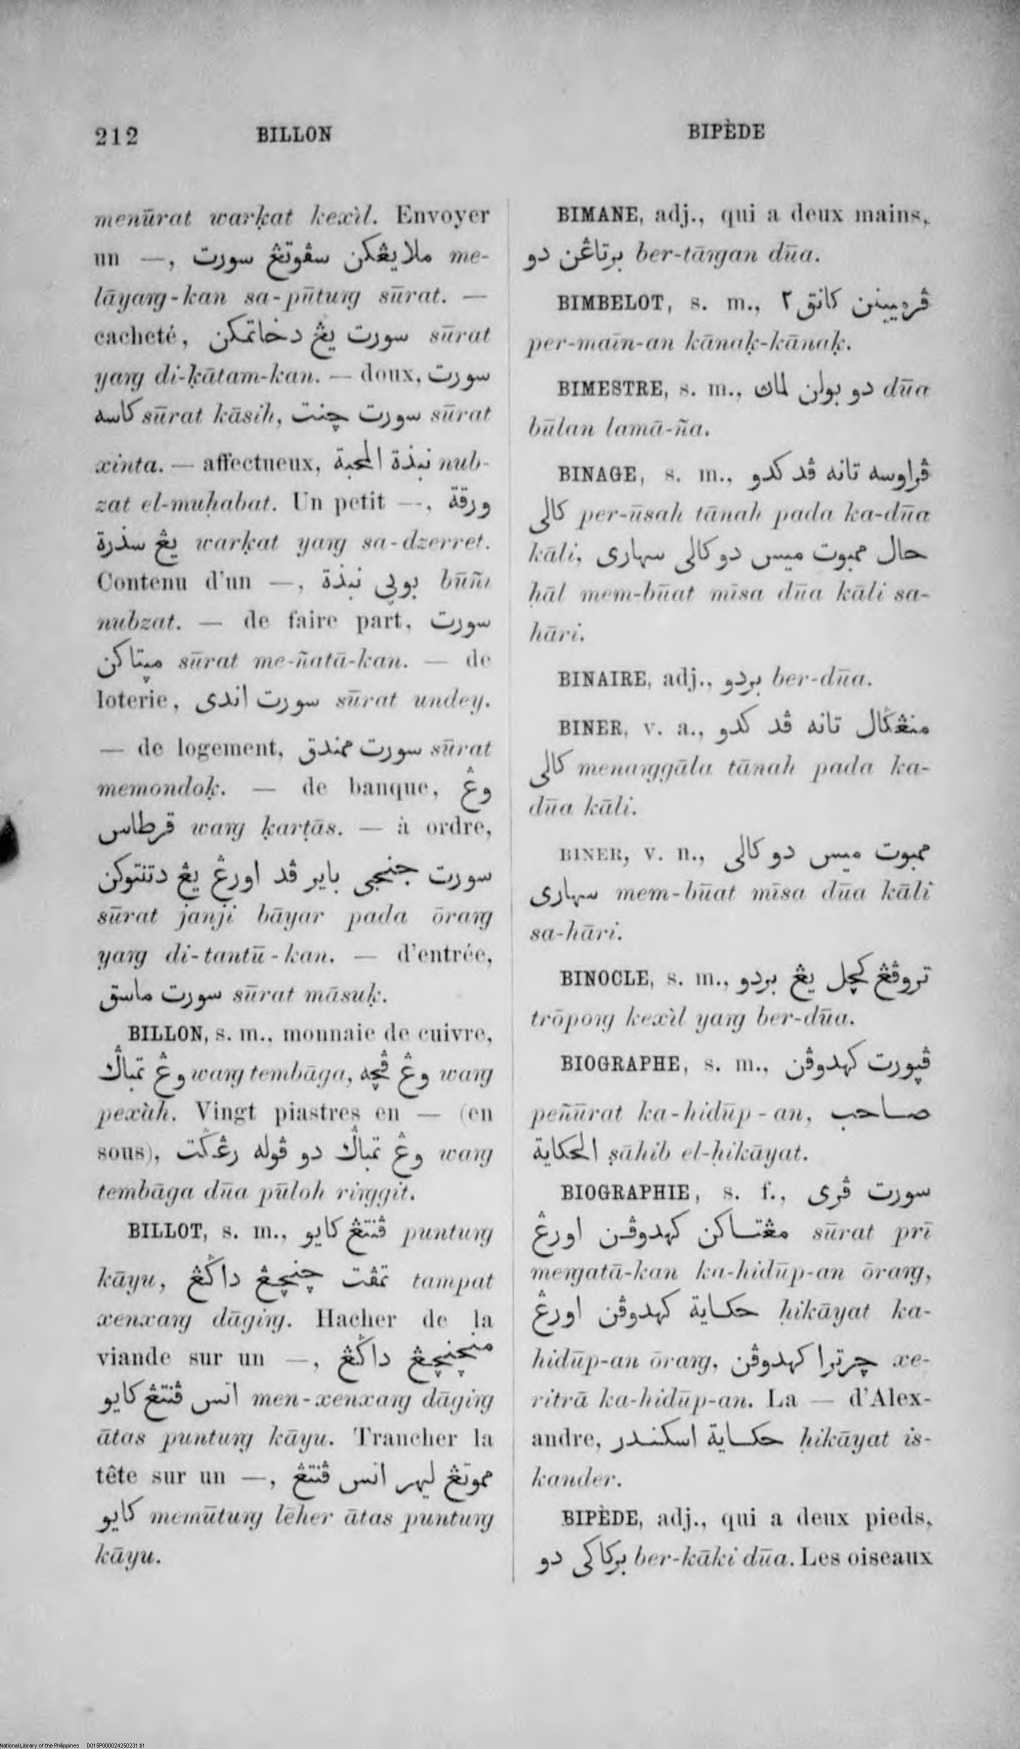 212 BILLON BIPÈDE
menūrat warḳat kexìl. Envoyer
un —, ملايڠكن سڤوتڠ سورت me-
lāyaŋ-kan sa-pūtuŋ sūrat. —
cacheté, سورت يڠ دخاتمكن sūrat
yaŋ di-ḳātam-kan. — doux, سورت
كاسه sūrat kāsih, سورت چنت sūrat
xinta. — affectueux, نبذة المحبة nub-
zat el-muḥabat. Un petit —, ورقة
يڠ سذرة warḳat yaŋ sa-dzerret.
Contenu d'un —, بوڽي نبذة būñi
nubzat. — de faire part, سورت
مڽتاكن sūrat me-ñatā-kan. — de
loterie, سورت اندى sūrat undey.
— de logement, سورت ممندق sūrat
memondoḳ. — de banque, وڠ
قرطاس waŋ ḳarṭās. — à ordre,
سورت جنجى باير ڤد اورڠ يڠ دتنتوكن
sūrat janji bāyar pada ōraŋ
yaŋ di-tantū-kan. — d'entrée,
سورت ماسق sūrat māsuḳ.
BILLON, s. m., monnaie de cuivre,
وڠ تمباݢ waŋ tembāga, وڠ ڤچه waŋ
pexàh. Vingt piastres en — (en
sous), وڠ تمباݢ دو ڤوله رڠݢت waŋ
tembāga dūa pūloh riŋgit.
BILLOT, s. m., ڤنتڠ كايو puntuŋ
kāyu, تمڤت چنچڠ داݢڠ tampat
xenxaŋ dāgiŋ. Hacher de la
viande sur un —, منچنچڠ داݢڠ
اتس ڤنتڠ كايو men-xenxaŋ dāgiŋ
ātas puntuŋ kāyu. Trancher la
tête sur un —, مموتڠ ليهر اتس ڤنتڠ
كايو memūtuŋ lēher ātas puntuŋ
kāyu.
BIMANE, adj., qui a deux mains,
برتاڠن دو ber-tāŋan dūa.
BIMBELOT, s. m., ڤرمييننن كانق ٢
per-maīn-an kānaḳ-kānaḳ.
BIMESTRE, s. m., دو بولن لماڽ dūa
būlan lamā-ña.
BINAGE, s. m., ڤراوسه تانه ڤد كدو
كالى per-ūsah tānah pada ka-dūa
kāli, حال ممبوت ميس دو كالى سهارى
ḥāl mem-būat mīsa dūa kāli sa-
hāri.
BINAIRE, adj., بردو ber-dūa.
BINER, v. a., منڠݢال تانه ڤد كدو
كالى menaŋgāla tānah pada ka-
dūa kāli.
BINER, v. n., ممبوت ميس دو كالى
سهارى mem-būat mīsa dūa kāli
sa-hāri.
BINOCLE, s. m., تروڤڠ كچل يڠ بردو
trōpoŋ kexìl yaŋ ber-dūa.
BIOGRAPHE, s. m., ڤڽورت كهدوڤن
peñūrat ka-hidūp-an, صاحب
الحكاية ṣāhib el-ḥikāyat.
BIOGRAPHIE, s. f., سورت ڤرى
مڠتاكن كهدوڤن اورڠ sūrat prī
meŋatā-kan ka-hidūp-an ōraŋ,
حكاية كهدوڤن اورڠ ḥikāyat ka-
hidūp-an ōraŋ, چرترا كهدوڤن xe-
ritrā ka-hidūp-an. La — d'Alex-
andre, حكاية اسكندر ḥikāyat is-
kander.
BIPÈDE, adj., qui a deux pieds,
بركاكى دو ber-kāki dūa. Les oiseaux
National Library of the Philippines